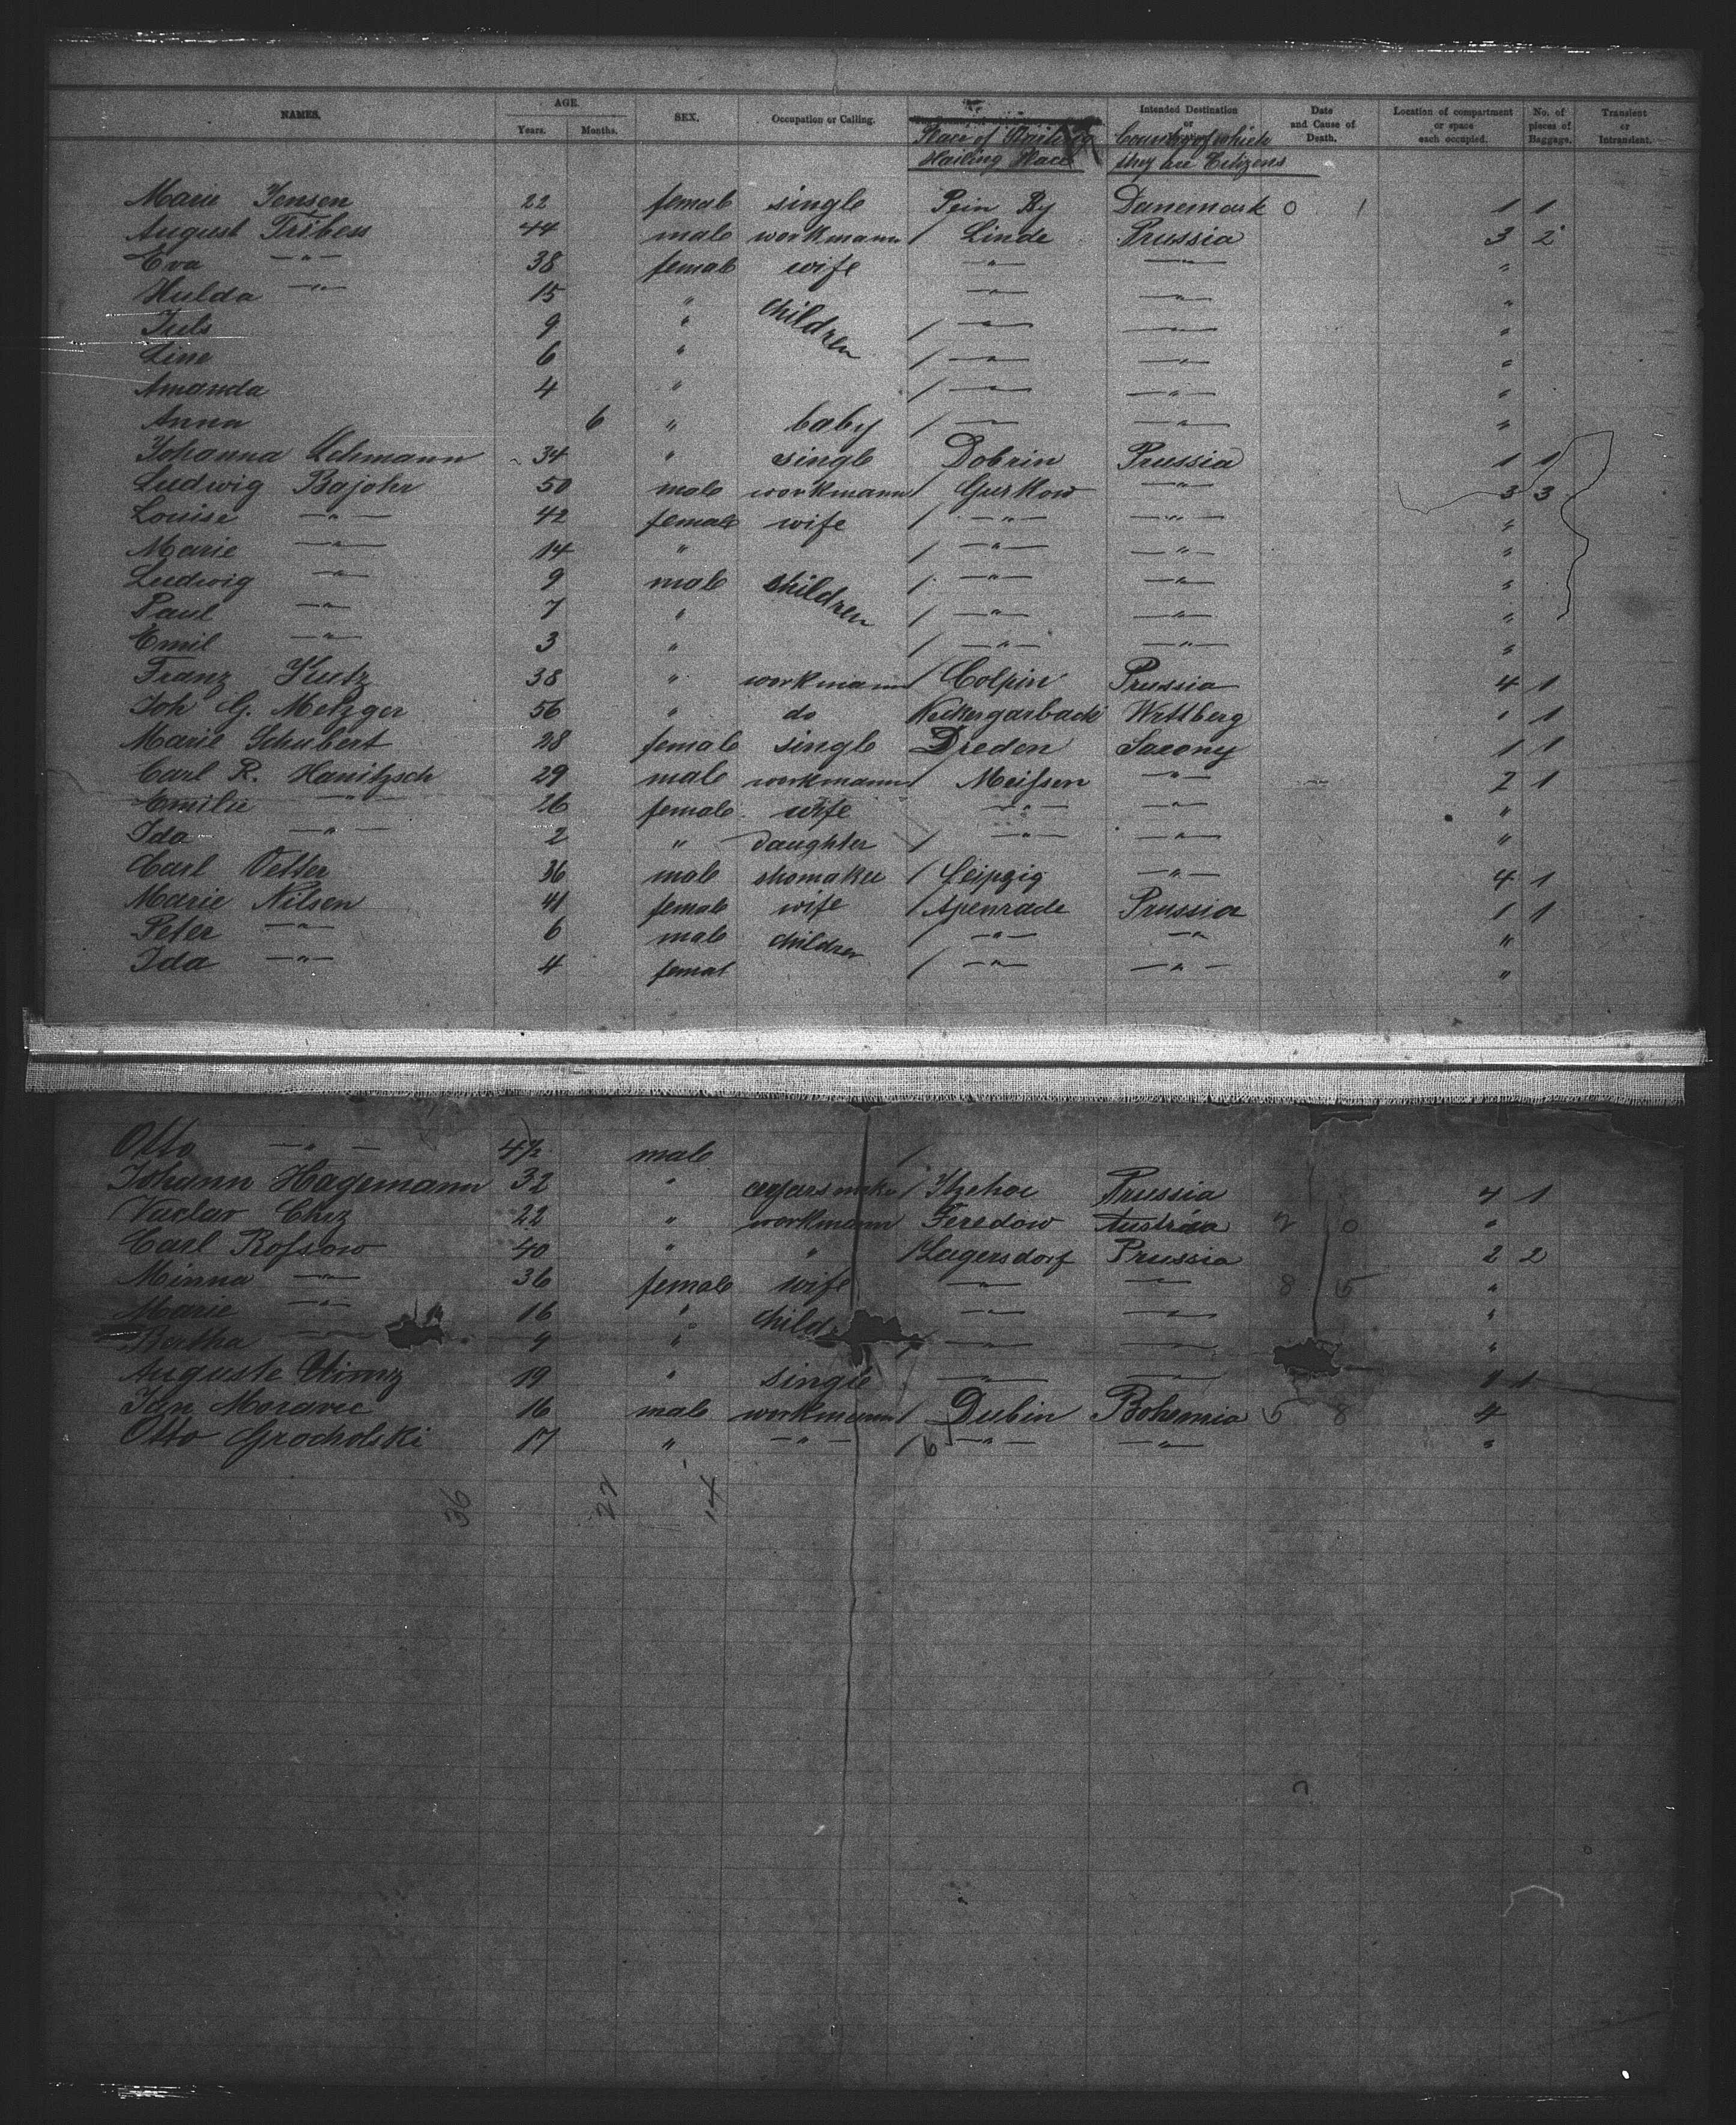 NAMES. AGE. Years. Months. SEX. Occupation or Calling. Place of Hailing Place Intended Destination or Country of which they are Citizens Date and Cause of Death. Location of compartment or space each occupied. No. of pieces of Baggage. Transient or Intransient.
Marie Jensen 22 female single Danemark 0 1 1 1
August Tribess 44 male workmann / Linde Prussia 3 2
Eva —"— 38 female wife —"— —"— "
Hulda —"— 15 " children —"— —"— "
Juls 9 " / —"— —"— "
Line 6 " / —"— —"— "
Amanda 4 " / —"— —"— "
Anna 6 " baby / — —"— "
Johanna Lehmann 34 " single Dobrin Prussia 1 1
Ludwig Bajohr 50 male workmann / Gurkow —"— 3 3
Louise —"— 42 female wife / —"— —"— "
Marie —"— 14 " / —"— —"— "
Ludwig —"— 9 male children / —"— —"— "
Paul —"— 7 " / —"— —"— "
Emil —"— 3 " / —"— —"— "
Franz Kutz 38 " workmann / Colpin Prussia 4 1
Joh G. Metzger 56 " do Wrttberg " 1
Marie Schubert 28 female single Dreden Saxony 1 1
Carl R. Hanitzsch 29 male workmann / Meissen —"— 2 1
Emilie —"— 26 female wife —"— —"— "
Ida —"— 2 " daughter / —"— —"— "
Carl Vetter 36 male shomaker / Leipzig —"— 4 1
Marie Nilsen 41 female wife / Apenrade Prussia 1 1
Peter —"— 6 male children / —"— —"— "
Ida —"— 4 femal / —"— —"— "
Otto —"— 4½ male /
Johann Hagemann 32 " / Itzehoe Prussia 4 1
Vaclav 22 " workmann Feredow Austria 2 0 "
Carl Rossow 40 " " / Lagersdorf Prussia 2 2
Minna —"— 36 female wife —"— —"— 8 5 "
Marie —"— 16 " child —"— —"— "
Bertha —"— 9 " / —"— —"— "
Auguste 19 " single —"— —"— 1 1
Jan Moravec 16 male workmann / Dubin Bohemia 5 8 4
Otto Grocholski 17 " —"— / 6 —"— —"— "
36 22 14